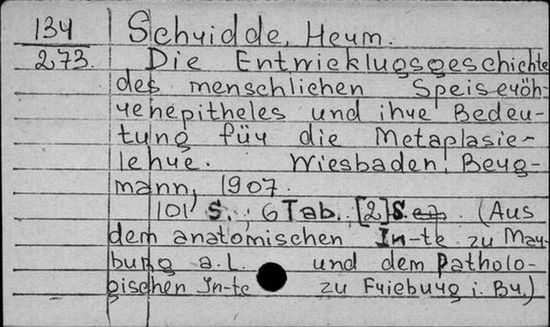 134 Schridde, Herm.
273. Die Entwicklugsgeschichte
des menschlichen Speiseröh-
renepitheles und ihre Bedeu-
tung für die Metaplasie-
lehre. Wiesbaden, Berg-
mann, 1907.
101 S., 6 Tab. [2] S. (Aus
dem anatomischen In-te zu Mar-
burg a. L. und dem Patholo-
gischen In-te zu Frieburg i. Br.)